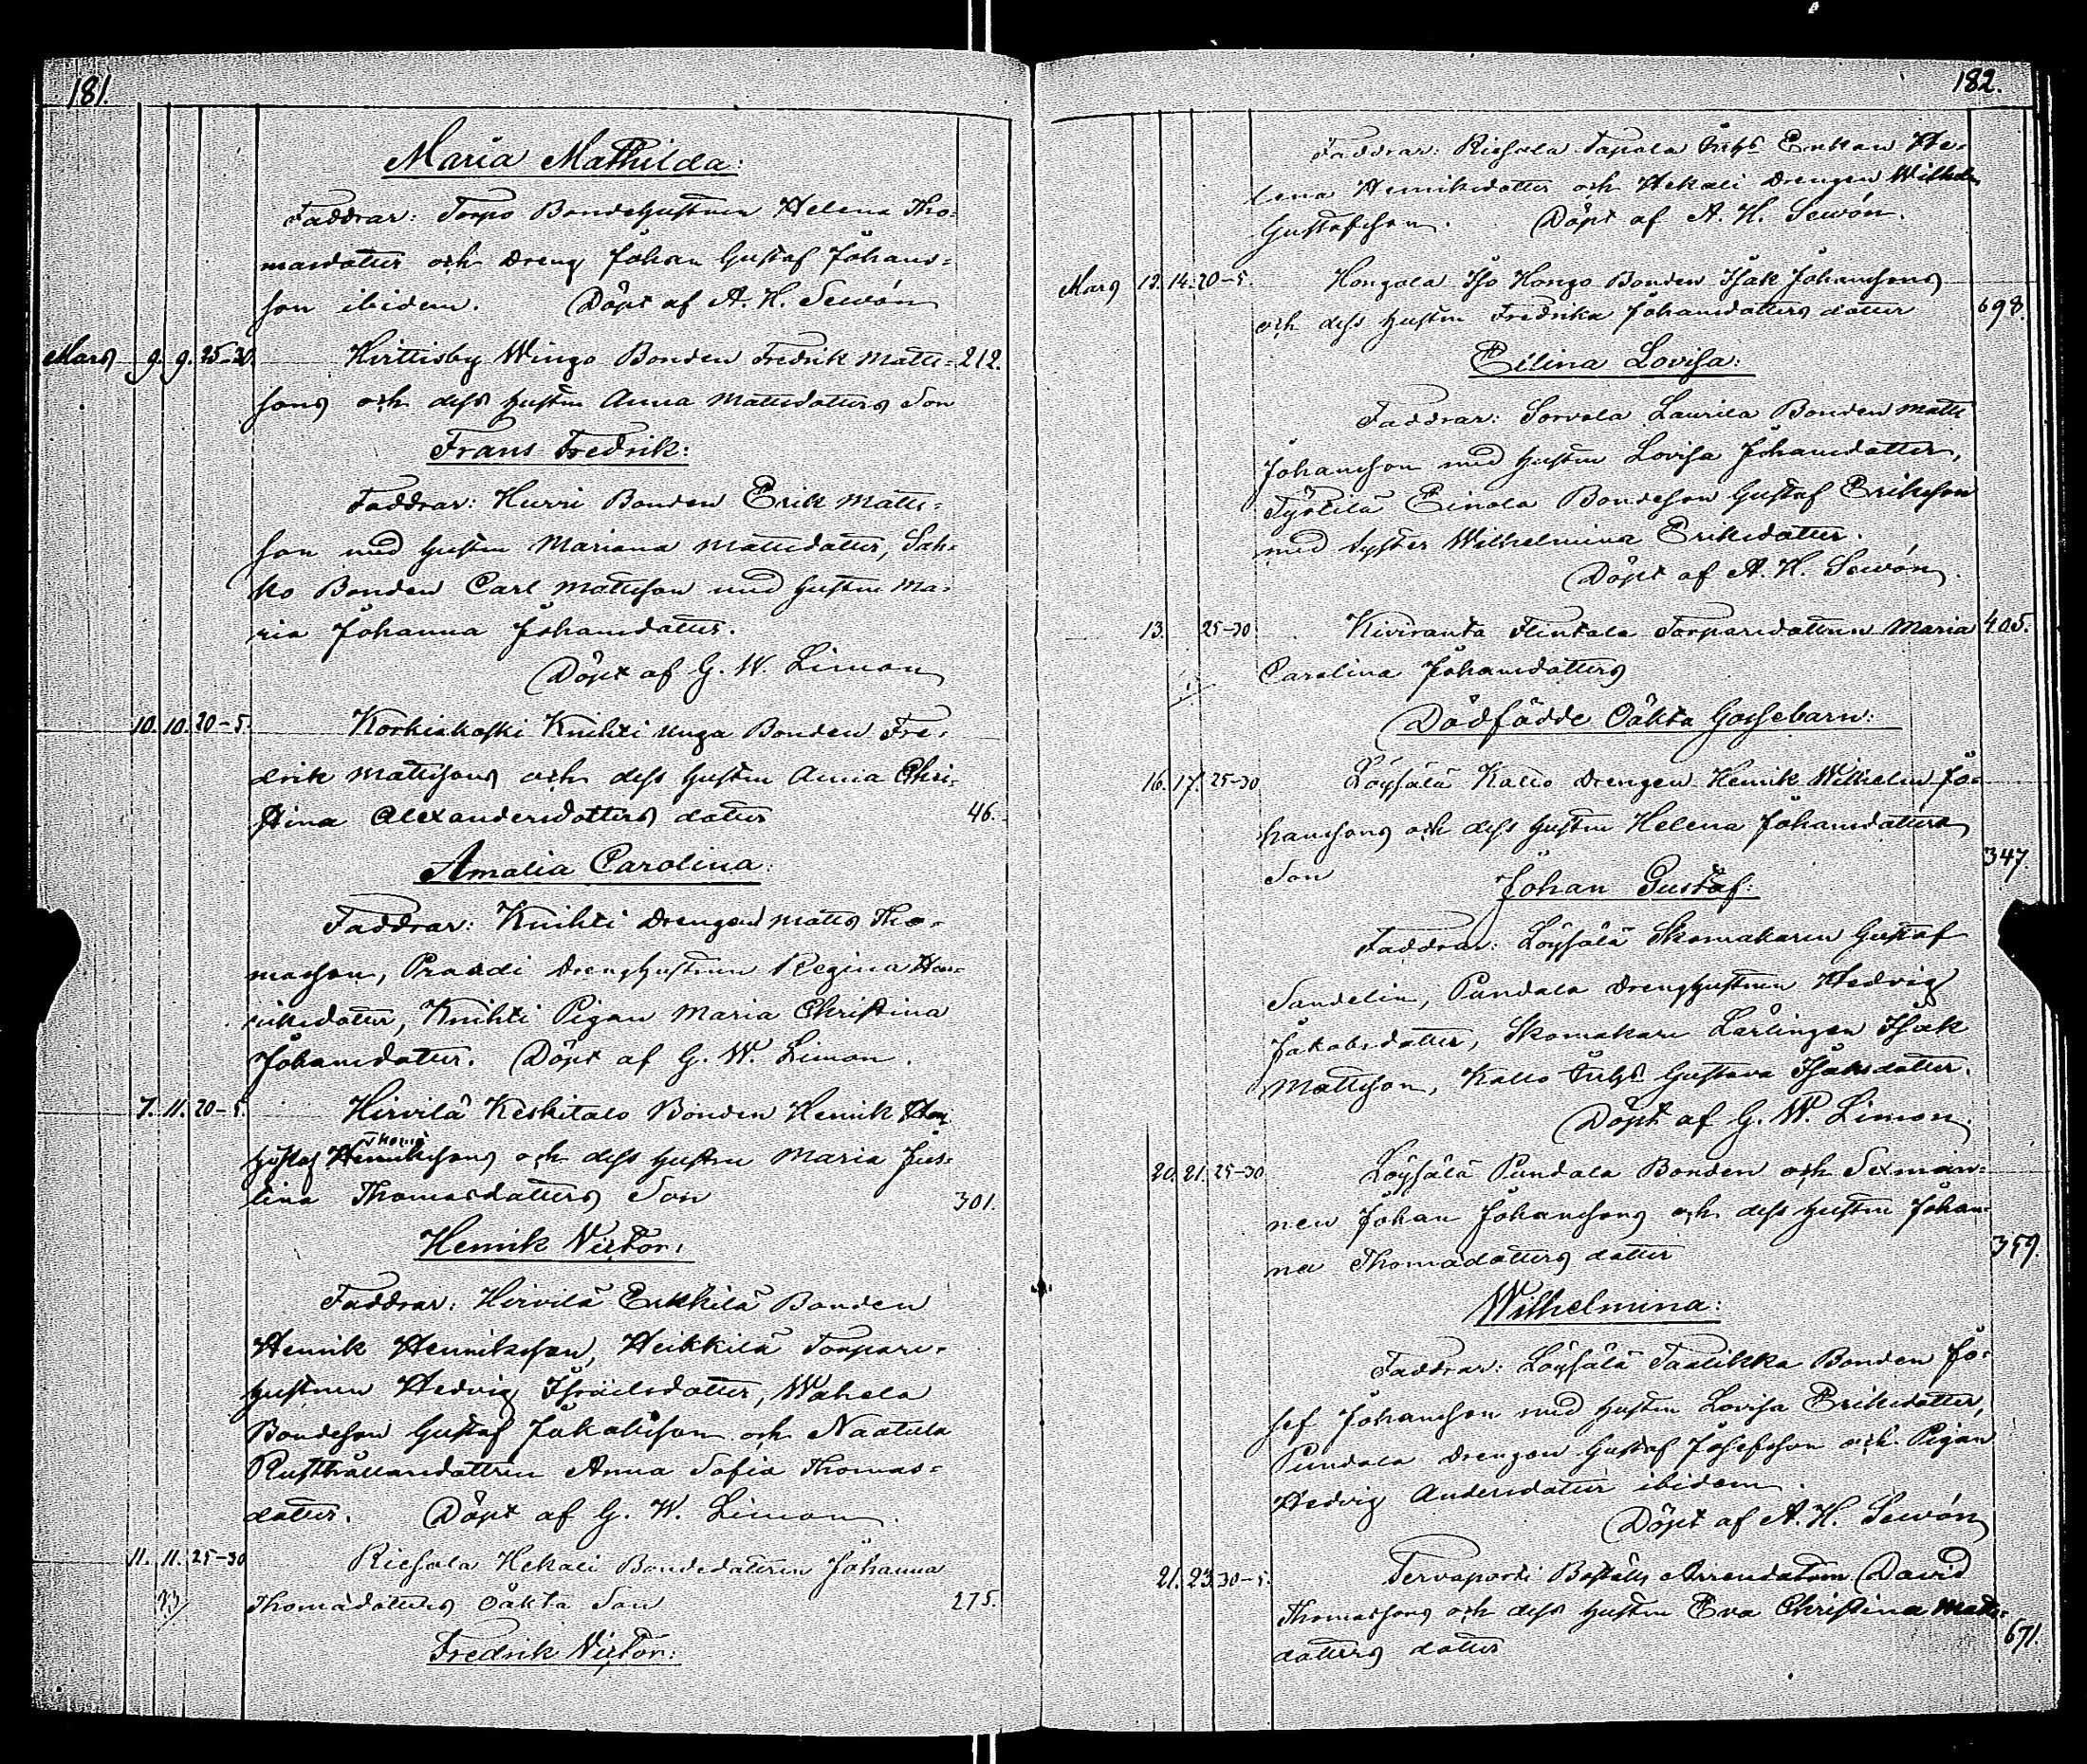 181.
Maria Mathilda:
Faddrar: Torpo Bondehustrun Helena Tho-
masdotter och Dreng Johan Gustaf Johans-
son ibidem. Döpt af A. H. Sewón
Mars 9. 9. 25-30. Hirttisby Wingo Bonden Fredrik Matts- 212.
sons och dess hustru Anna Mattsdotters Son
Frans Fredrik:
Faddrar: Hurri Bonden Erik Matts-
son med hustru Mariana Mattsdotter, Sah-
ko Bonden Carl Mattsson med hustru Ma-
ria Johanna Johansdotter.
Döpt af G. W. Limon
10. 10. 20-5. Korkiakoski Knihti unga Bonden Fre-
drik Mattssons och dess hustru Anna Chri-
stina Alexandersdotters dotter 46.
Amalia Carolina:
Faddrar: Knihti Drengen Matts Tho-
masson, Praudi Dreng hustrun Regina Hen-
riksdotter, Knihti Pigan Maria Christina
Johansdotter. Döpt af G. W. Limon.
7. 11. 20-5. Hirvilä Keskitalo Bonden Henrik
Gustaf Thoms sons och dess hustru Maria Jus-
tina Thomasdotters Son 301.
Henrik Victor:
Faddrar: Hirvilä Erkkilä Bonden
Henrik Henriksson, Heikkilä Torpare-
hustrun Hedvig Israelsdotter, Wahela
Bondeson Gustaf Jakobsson och Naatula
Rusthållarsdottren Anna Sofia Thomas-
dotter. Döpt af G. W. Limon.
11. 11. 25-30 Riesola Hekali Bondedottren Johanna
Thomasdotters Oäkta Son 275.
Fredrik Victor:
182.
Faddrar: Riesola Tapola Inhs Enkan He-
lena Henriksdotter och Hekali Drengen Wilhelm
Gustafsson. Döpt af A. H. Sewón.
Mars 12. 14. 20-5. Hongola Iso Hongo Bonden Isak Johanssons
och dess hustru Fredrika Johansdotters dotter 698.
Eilina Lovisa:
Faddrar: Sorvola Laurila Bonden Matts
Johansson med hustru Lovisa Johansdotter,
Työtilä Einola Bondeson Gustaf Eriksson
med syster Wilhelmina Eriksdotter.
Döpt af A. H. Sewón.
13. 25-30 Kiviranta Flinkala Torparedottren Maria 405.
Carolina Johansdotters
Dödfödde Oäkta Gossebarn:
16. 17. 25-30 Löysälä Kallio Drengen Henrik Wilhelm Jo-
hanssons och dess hustru Helena Johansdotters
Son 347.
Johan Gustaf:
Faddrar: Löysälä Skomakaren Gustaf
Sandelin, Pundala Dreng hustrun Hedvig
Jakobsdotter, Skomakare Lärlingen Isak
Mattsson, Kallio Inhs Gustava Isaksdotter.
Döpt af G. W. Limon.
20. 21. 25-30 Löysälä Pundala Bonden och Sexman-
nen Johan Johanssons och dess hustru Johan-
na Thomasdotters dotter 359.
Wilhelmina:
Faddrar: Löysälä Taalikka Bonden Jo-
sef Johansson med hustru Lovisa Eriksdotter,
Pundala Drengen Gustaf Josefsson och Pigan
Hedvig Andersdotter ibidem.
Döpt af A. H. Sewón
21. 23. 30-5. Tervaporti Boställs Arrendatorn David
Thomassons och dess hustru Eva Christina Matts-
dotters dotter 671.